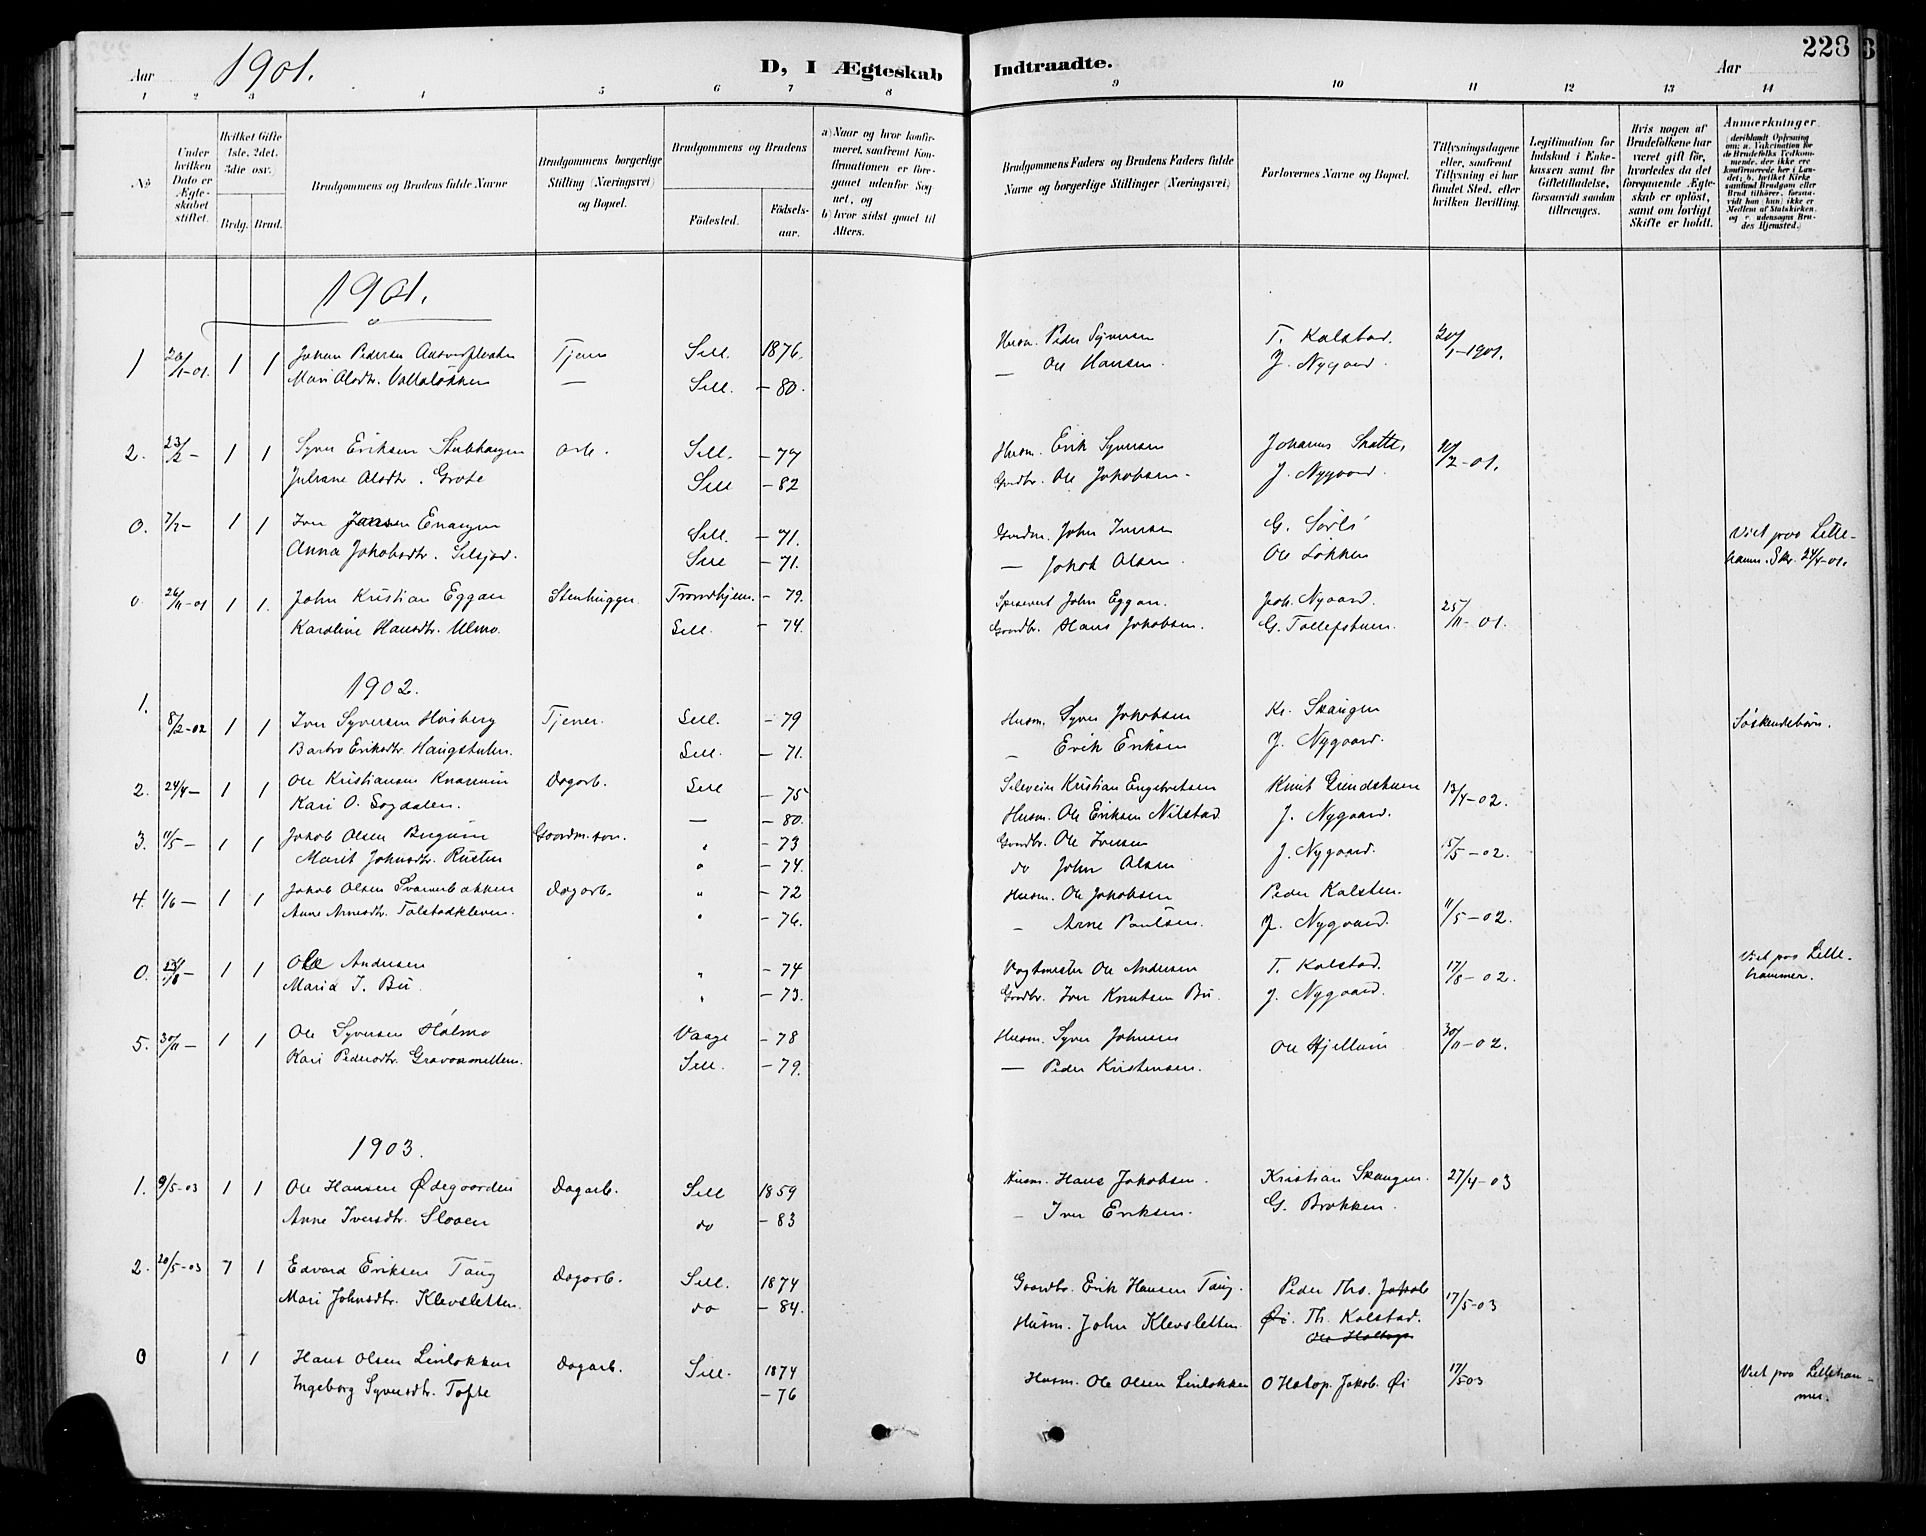 228
Aar 1901. D, I Ægteskab Indtraadte. Aar
1 2 3 4 5 6 7 8 9 10 11 12 13 14
No
Under hvilken Dato er Ægteskabet stiftet.
Hvilket Gifte (1ste, 2det, 3die osv.
Brdg. Brud.
Brudgommens og Brudens fulde Navne
Brudgommens borgerlige Stilling (Næringsvei) og Bopæl.
Brudgommens og Brudens
Fødested.
Fødselsaar.
a) Naar og hvor konfirmeret, saafremt Konfirmationen er foregaaet udenfor Sognet, og
b) hvor sidst gaaet til Alters.
Brudgommens Faders og Brudens Faders fulde Navne og borgerlige Stillinger (Næringsvei)
Forlovernes Navne og Bopæl.
Tillysningsdagene eller, saafremt Tillysning ei har fundet Sted, efter hvilken Bevilling.
Legitimation for Indskud i Enkekassen samt for Giftetilladelse, forsaavidt saadan tiltrænges.
Hvis nogen af Brudefolkene har været gift før, hvorledes da det foregaaende Ægteskab er opløst, samt om lovligt Skifte er holdt.
Anmærkninger
(deriblandt Oplysning om: a. Vakcination for de Brudefolks Vedkommende, der ikke ere konfirmerede her i Landet; b. hvilket Kirkesamfund Brudgom eller Brud tilhører, forsaavidt han (hun) ikke er Medlem af Statskirken, og c. udensogns Brudes Hjemsted.)
1901.
1 26/1-01. 1 1 Johan Pedersen Tjener Sell. 1876. Husm. Peder Syversen T. Kalstad. 20/1-1901.
Mari Olsdtr. Valleløkken — Sell. - 80. — Ole Hansen. J. Nygaard.
2. 23/2 - 1 1 Syver Eriksen Stubhaugen arb. Sell. - 77 Husm. Erik Syversen Johannes Skatte 10/2-01.
Juliane Olsdtr. Grøte Sell - 82 Grdbr. Ole Jakobsen. J. Nygaard.
0. 7/7- 1 1 Iver Jansen Enaagen Sell. - 71. Gaardm. John Iversen G. Sørli Viet paa Lille-
Anna Jakobsdtr. Selsjord. Sell - 71. — Jakob Olsen. Ole Løkken hamm. Skr. 24/4-01.
0. 26/11-01 1 1. John Kristian Eggan Stenhugger. Trondhjem. - 79. Spisevert John Eggan. Joh. Nygaard. 25/11-01.
Karoline Hansdtr. Ulmo. Sell. - 74. Gaardbr. Hans Jakobsen. G. Tollefshuen.
1902.
1. 8/2-02 1 1 Iver Syversen Høsberg Tjener. Sell. - 79 Husm. Syver Jakobsen Kr. Skaugen Søskendebørn.
Barbro Eriksdtr. Haugstulen. Sell. - 71. — Erik Eriksen J. Nygaard.
2. 24/4- 1 1 Ole Kristiansen Dagarb. Sell - 75 Kristian Engebretsen Knut Grindstuen 13/4-02.
Kari O. Sogdalen. — - 80. Husm. Ole Eriksen Nilstad. J. Nygaard.
3. 11/5- 1 1 Jakob Olsen Bugum Gaardm. søn. " - 73 Grdbr. Ole Iversen J. Nygaard. 15/5-02.
Marit Johnsdtr. Rusten " - 74. do John Olsen
4. 1/6- 1 1 Jakob Olsen Svarverbakken Dagarb. " - 72 Husm. Ole Jakobsen Peder Kalsten. 11/5-02.
Anne Arnesdtr. Tolstadkleven. " - 76. — Arne Paulsen. J. Nygaard.
0. 1 1 Ole Andersen " - 74 Vagtmester Ole Andersen T. Kalstad. 17/8-02. Viet paa Lille-
Maria I. Bu. " - 73. Grdbr. Iver Knutsen Bu. J. Nygaard. hammer.
5. 30/11- 1 1 Ole Syversen Holmo Vaage - 78 Husm. Syver Johnsen Ole Hjellum 30/11-02.
Kari Pedersdtr. Gravaamellem. Sell. - 79. — Peder Kristensen.
1903.
1. 9/5-03 1 1 Ole Hansen Ødegaarden Dagarb. Sell 1859 Husm. Hans Jakobsen. Kristian Skaugen. 27/4-03
Anne Iversdtr. Slaaen do - 83 — Iver Eriksen. G. Brækken.
2. 20/5-03 7 1 Edvard Eriksen Taug Dagarb. Sell. 1874 Gaardbr. Erik Hansen Taug. Peder Ths. Jakob 17/5-03
Mari Johnsdtr. Klevsletten. do - 84. Husm. John Klevsletten Øi. Th. Kalstad.
Ole Holtop
0 1 1 Hans Olsen Linløkken Dagarb. Sell. 1874 Husm. Ole Olsen Linløkken O Hotop. Jakob. Øi 17/503 Viet paa Lilleham-
Ingeborg Syversdtr. Tofte - 76 mer.